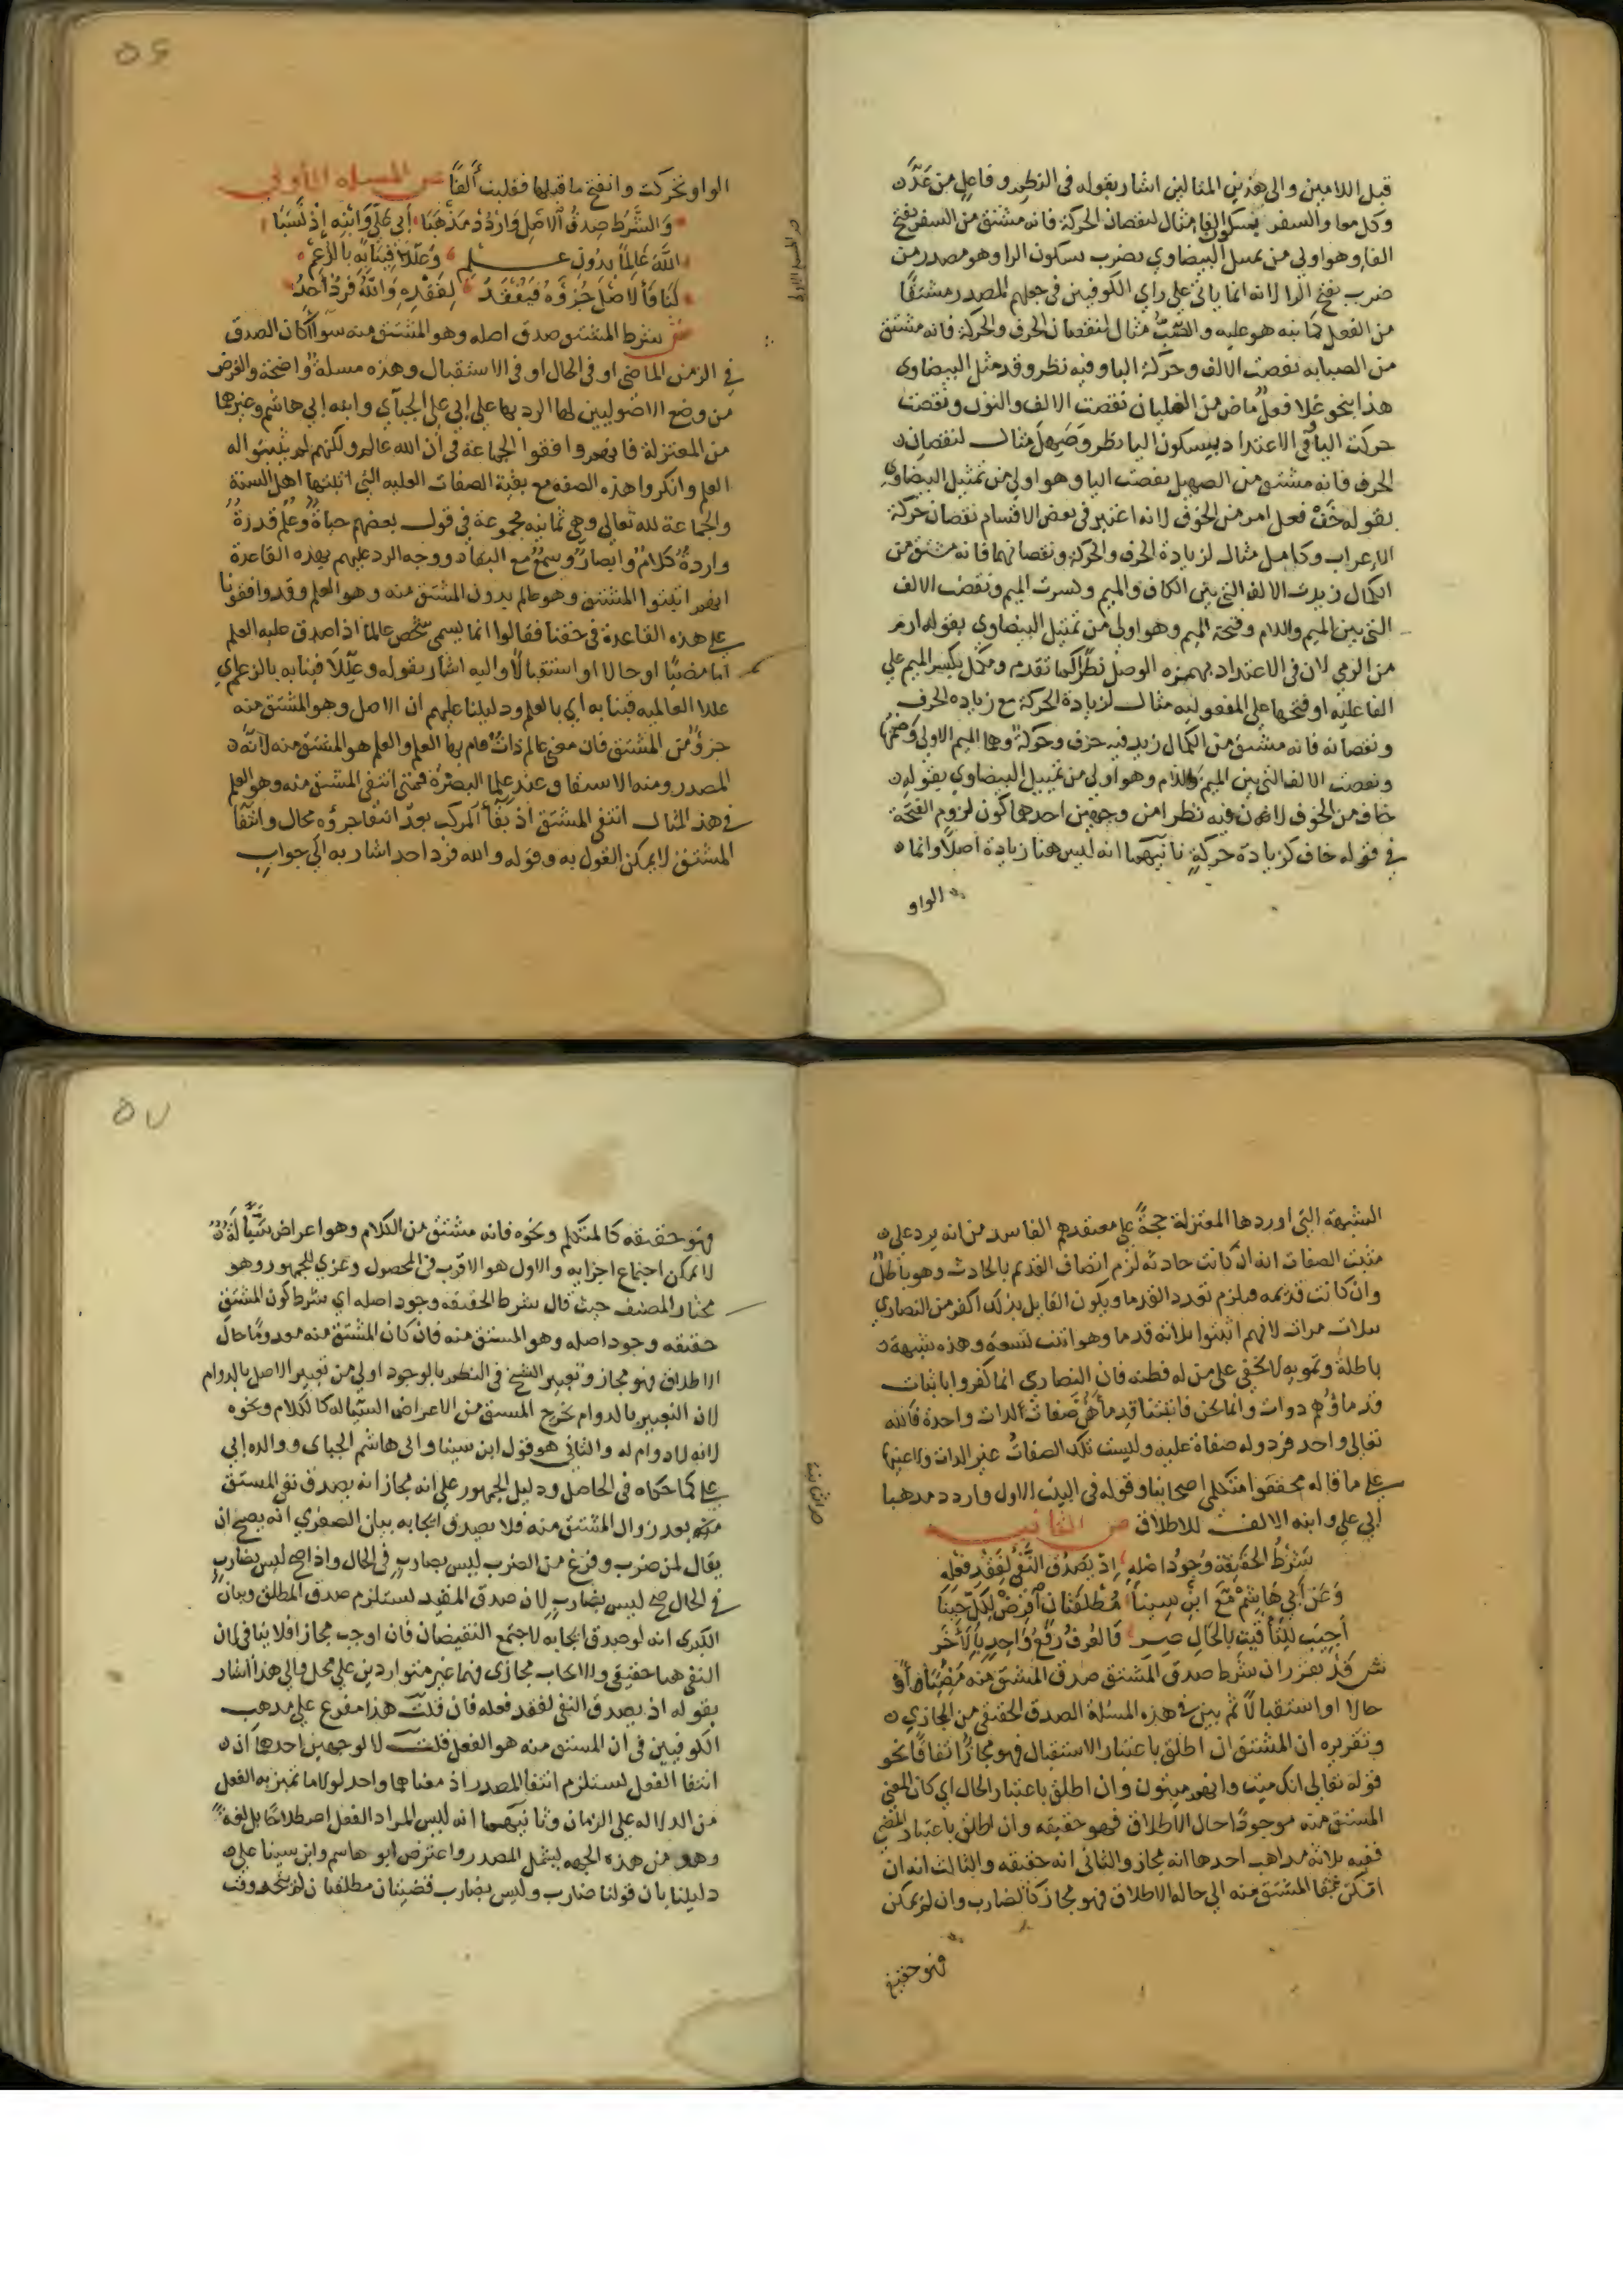 قبل اللامين والى هذين المثالين اشار بقوله فى النظم وفاعل من عدّ
وكل معا والسفر بسكون الفا مثال لنقصان الحركة فانه مشتق من السفر بفتح
الفا وهو اولى من تمثيل البيضاوي بضرب بسكون الرا وهو مصدر من
ضرب بفتح الرا لانه انما ياتى على راي الكوفيين في جعلهم المصدر مشتقا
من الفعل كما نبه هو عليه والصّبّ مثال لنقصان الحرف والحركة فانه مشتق
من الصبابه نقصت الالف وحركة البا وفيه نظر وقد مثل البيضاوى
هذا بنحو غلا فعل ماض من الغليان نقصت الالف والنون ونقصت
حركت اليا وفى الاعتداد بسكون اليا نظر وصهل مثال لنقصان
الحرف فانه مشتق من الصهيل نقصت اليا وهو اولى من تمثيل البيضاوي
بقوله خف فعل امر من الخوف لانه اعتبر فى بعض الاقسام نقصان حركة
الاعراب وكامل مثال لزيادة الحرف والحركة ونقصانهما فانه مشتق من
الكمال زيدت الالف التى بين الكاف والميم وكسرت الميم ونقصت الالف
التى بين الميم واللام وفتحة الميم وهو اولى من تمثيل البيضاوي بقوله ارم
من الرمي لان فى الاعتداد بهمزه الوصل نظرا كما تقدم ومكمل بكسر الميم على
الفاعليه او فتحها على المفعوليه مثال لزيادة الحركة مع زياده الحرف
ونقصانه فانه مشتق من الكمال زيد فيه حرف وحركة وهما الميم الاولى وضمها
ونقصت الالف التى بين الميم واللام وهو اولى من تمثيل البيضاوي بقوله
خاف من الخوف لان فيه نظرا من وجهين احدهما كون لزوم الفتحة
في قوله خاف كزيادة حركة ثانيهما انه ليس هنا زيادة اصلا وانما
الواو
٥٦
الواو تحركت وانفتح ما قبلها فقلبت ألفا ص المسله الأولى
والشرط صدق الاصل واردد مذهبا أبي علي وابنه إذ نسبا
الله عالما بدون علم وعللا فينا به بالزعم
لنا فالاصل جزؤه فيفقد لفقده والله فرد أحد
ش شرط المشتق صدق اصله وهو المشتق منه سواا كان الصدق
في الزمن الماضى او فى الحال او فى الاستقبال وهذه مسله واضحة والغرض
من وضع الاصوليين لها الرد بها على ابى على الجبآي وابنه ابي هاشم وغيرهما
من المعتزلة فانهم وافقوا الجماعة فى ان الله عالم ولكنهم لم يثبتوا له
العلم وانكروا هذه الصفه مع بقية الصفات العليه التى اثبتها اهل السنة
والجماعة لله تعالى وهى ثمانيه مجموعة في قول بعضهم حياة وعلم قدرة
وارادة كلام وابصار وسمع مع البقاء ووجه الرد عليهم بهذه القاعدة
انهم اثبتوا المشتق وهو عالم بدون المشتق منه وهو العلم وقد وافقونا
على هذه القاعدة فى حقنا فقالوا انما يسمى شخص عالما اذا صدق عليه العلم
اما مضيا او حالا او استقبالا واليه اشار بقوله وعللا فينا به بالزعم اي
عللا العالميه فينا به أي بالعلم ودليلنا عليهم ان الاصل وهو المشتق منه
جزؤ من المشتق فان معنى عالم ذات قام بها العلم والعلم هو المشتق منه لانه
المصدر ومنه الاشتقا ق عند علما البصرة فمتى انتفى المشتق منه وهو العلم
في هذ المثال انتفى المشتق اذ بقآ المركب بعد انتفا جزؤه محال وانتفا
المشتق لا يمكن القول به وقوله والله فرد احد اشار به الى جواب
الشبهة التى اوردها المعتزلة حجة على معتقدهم الفاسد من انه يرد على
مثبت الصفات انه ان كانت حادثه لزم اتصاف القديم بالحادث وهو باطل
وان كانت قديمه فيلزم تعدد القدما ويكون القايل بذلك اكفر من النصارى
بثلاث مرات لانهم اثبتوا ثلاثة قدما وهو اثبت تسعة وهذه شبهة
باطلة وتمويه لا يخفى على من له فطنه فان النصارى انما كفروا باثبات
قدماؤهم ذوات وانما نحن فاثبتنا قدما هي صفات لذات واحدة فالله
تعالى واحد فرد وله صفاة عليه وليست تلك الصفات عين الذات ولا غيرها
على ما قاله محققوا متكلمي اصحابنا وقوله فى البيت الاول واردد مذهبا
أبي علي وابنه الالف للاطلاق ص الثانيه
شرط الحقيقة وجود اصله إذ يصدق النفي لفقد فعله
وعن أبي هاشم مع ابن سينا مطلقتان افرض لكل حينا
أجيب للتأقيت بالحال صير فالعرف رفع واحد بالآخر
ش قد تقرر ان شرط صدق المشتق صدق المشتق منه مضيا أو
حالا او استقبالا ثم بين في هذه المسلة الصدق الحقيقى من المجازي
وتقريره ان المشتق ان اطلق باعتبار الاستقبال فهو مجاز اتفاقا نحو
قوله تعالى انك ميت وانهم ميتون وان اطلق باعتبار الحال اي كان المعنى
المشتق منه موجودا حال الاطلاق فهو حقيقه وان اطلق باعتبار المضي
ففيه ثلاثة مذاهب احدها انه مجاز والثانى انه حقيقه والثالث انه ان
امكن بقا المشتق منه الى حاله الاطلاق فهو مجاز كالضارب وان لم يمكن
فهو حقيقه
٥٧
فهو حقيقه كالمتكلم ونحوه فانه مشتق من الكلام وهو اعراض سيالة
لا يمكن اجتماع اجزايه والاول هو الاقرب فى المحصول وعزي للجمهور وهو
مختار المصنف حيث قال شرط الحقيقه وجود اصله اي شرط كون المشتق
حقيقه وجود اصله وهو المشتق منه فان كان المشتق منه معدوما حال
الاطلاق فهو مجاز وتعبير الشيخ فى النظم بالوجود اولى من تعبير الاصل بالدوام
لان التعبير بالدوام يخرج المشتق من الاعراض السياله كالكلام ونحوه
لانه لا دوام له والثانى هو قول ابن سينا وابى هاشم الجباى ووالده ابي
على كما حكاه فى الحاصل ودليل الجمهور على انه مجاز انه يصدق نفى المشتق
منه بعد زوال المشتق منه فلا يصدق ايجابه بيان الصغرى انه يصح ان
يقال لمن ضرب وفرغ من الضرب ليس بضارب في الحال واذا صح ليس بضارب
في الحال صح ليس بضارب لان صدق المقيد يستلزم صدق المطلق وبيان
الكبرى انه لو صدق ايجابه لاجتمع النقيضان فان اوجب مجازا فلا ينافى لان
النفى هنا حقيقى والايجاب مجازى فهما غير متواردين على محل والى هذا اشار
بقوله اذ يصدق النفى لفقد فعله فان قلت هذا مفرع على مذهب
الكوفيين فى ان المشتق منه هو الفعل قلت لا لوجهين احدهما ان
انتفا الفعل يستلزم انتفا المصدر اذ معناهما واحد لولا ما تميز به الفعل
من الدلاله على الزمان وثانيهما انه ليس المراد الفعل اصطلاحا بل لغة
وهو من هذه الجهه يشمل المصدر واعترض ابو هاشم وابن سينا على
دليلنا بان قولنا ضارب وليس بضارب قضيتان مطلقتان لم يتحد وقت